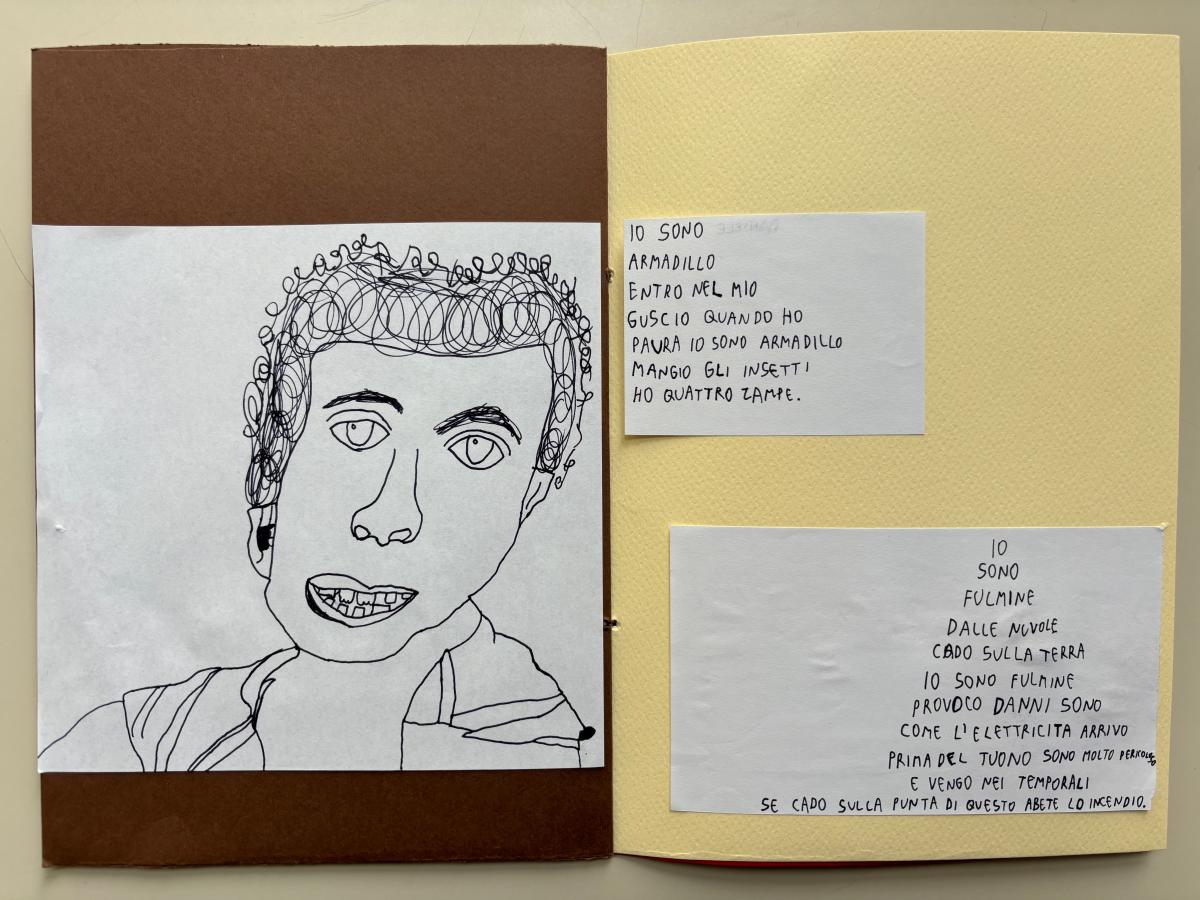 IO SONO
ARMADILLO
ENTRO NEL MIO
GUSCIO QUANDO HO
PAURA IO SONO ARMADILLO
MANGIO GLI INSETTI
HO QUATTRO ZAMPE.
IO
SONO
FULMINE
DALLE NUVOLE
CADO SULLA TERRA
IO SONO FULMINE
PROVOCO DANNI SONO
COME L'ELETTRICITA ARRIVO
PRIMA DEL TUONO SONO MOLTO PERICOLOSO
E VENGO NEI TEMPORALI
SE CADO SULLA PUNTA DI QUESTO ABETE LO INCENDIO.